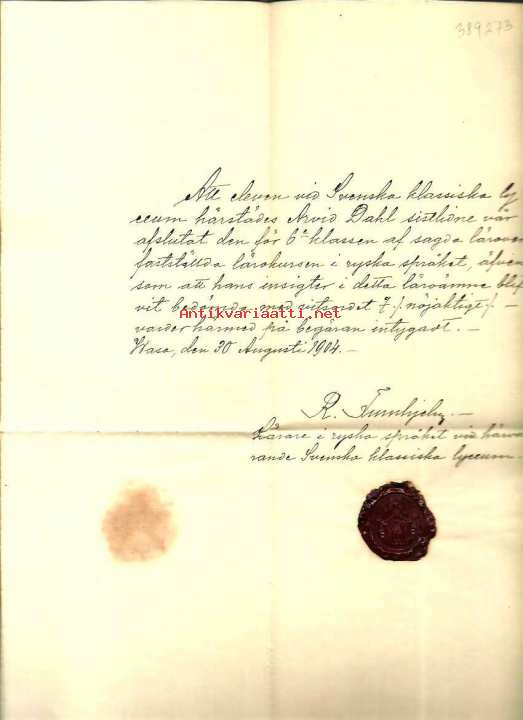 389273
Att eleven vid Svenska klassiska ly
ceum härstädes Arvid Dahl sistlidne vår
afslutat den för 6te klassen af sagda lärover
fastställda lärokursen i ryska språket, äfven
som att hans insigter i detta läroämne blif
vit bedömda med vitsordet 7 /. nöjaktige /. –
varder härmed på begäran intygadt. –
Antikvariaatti.net
Wasa, den 30 Augusti 1904. –
R.
Lärare i ryska språket vid härva
rande Svenska klassiska lyceum. –